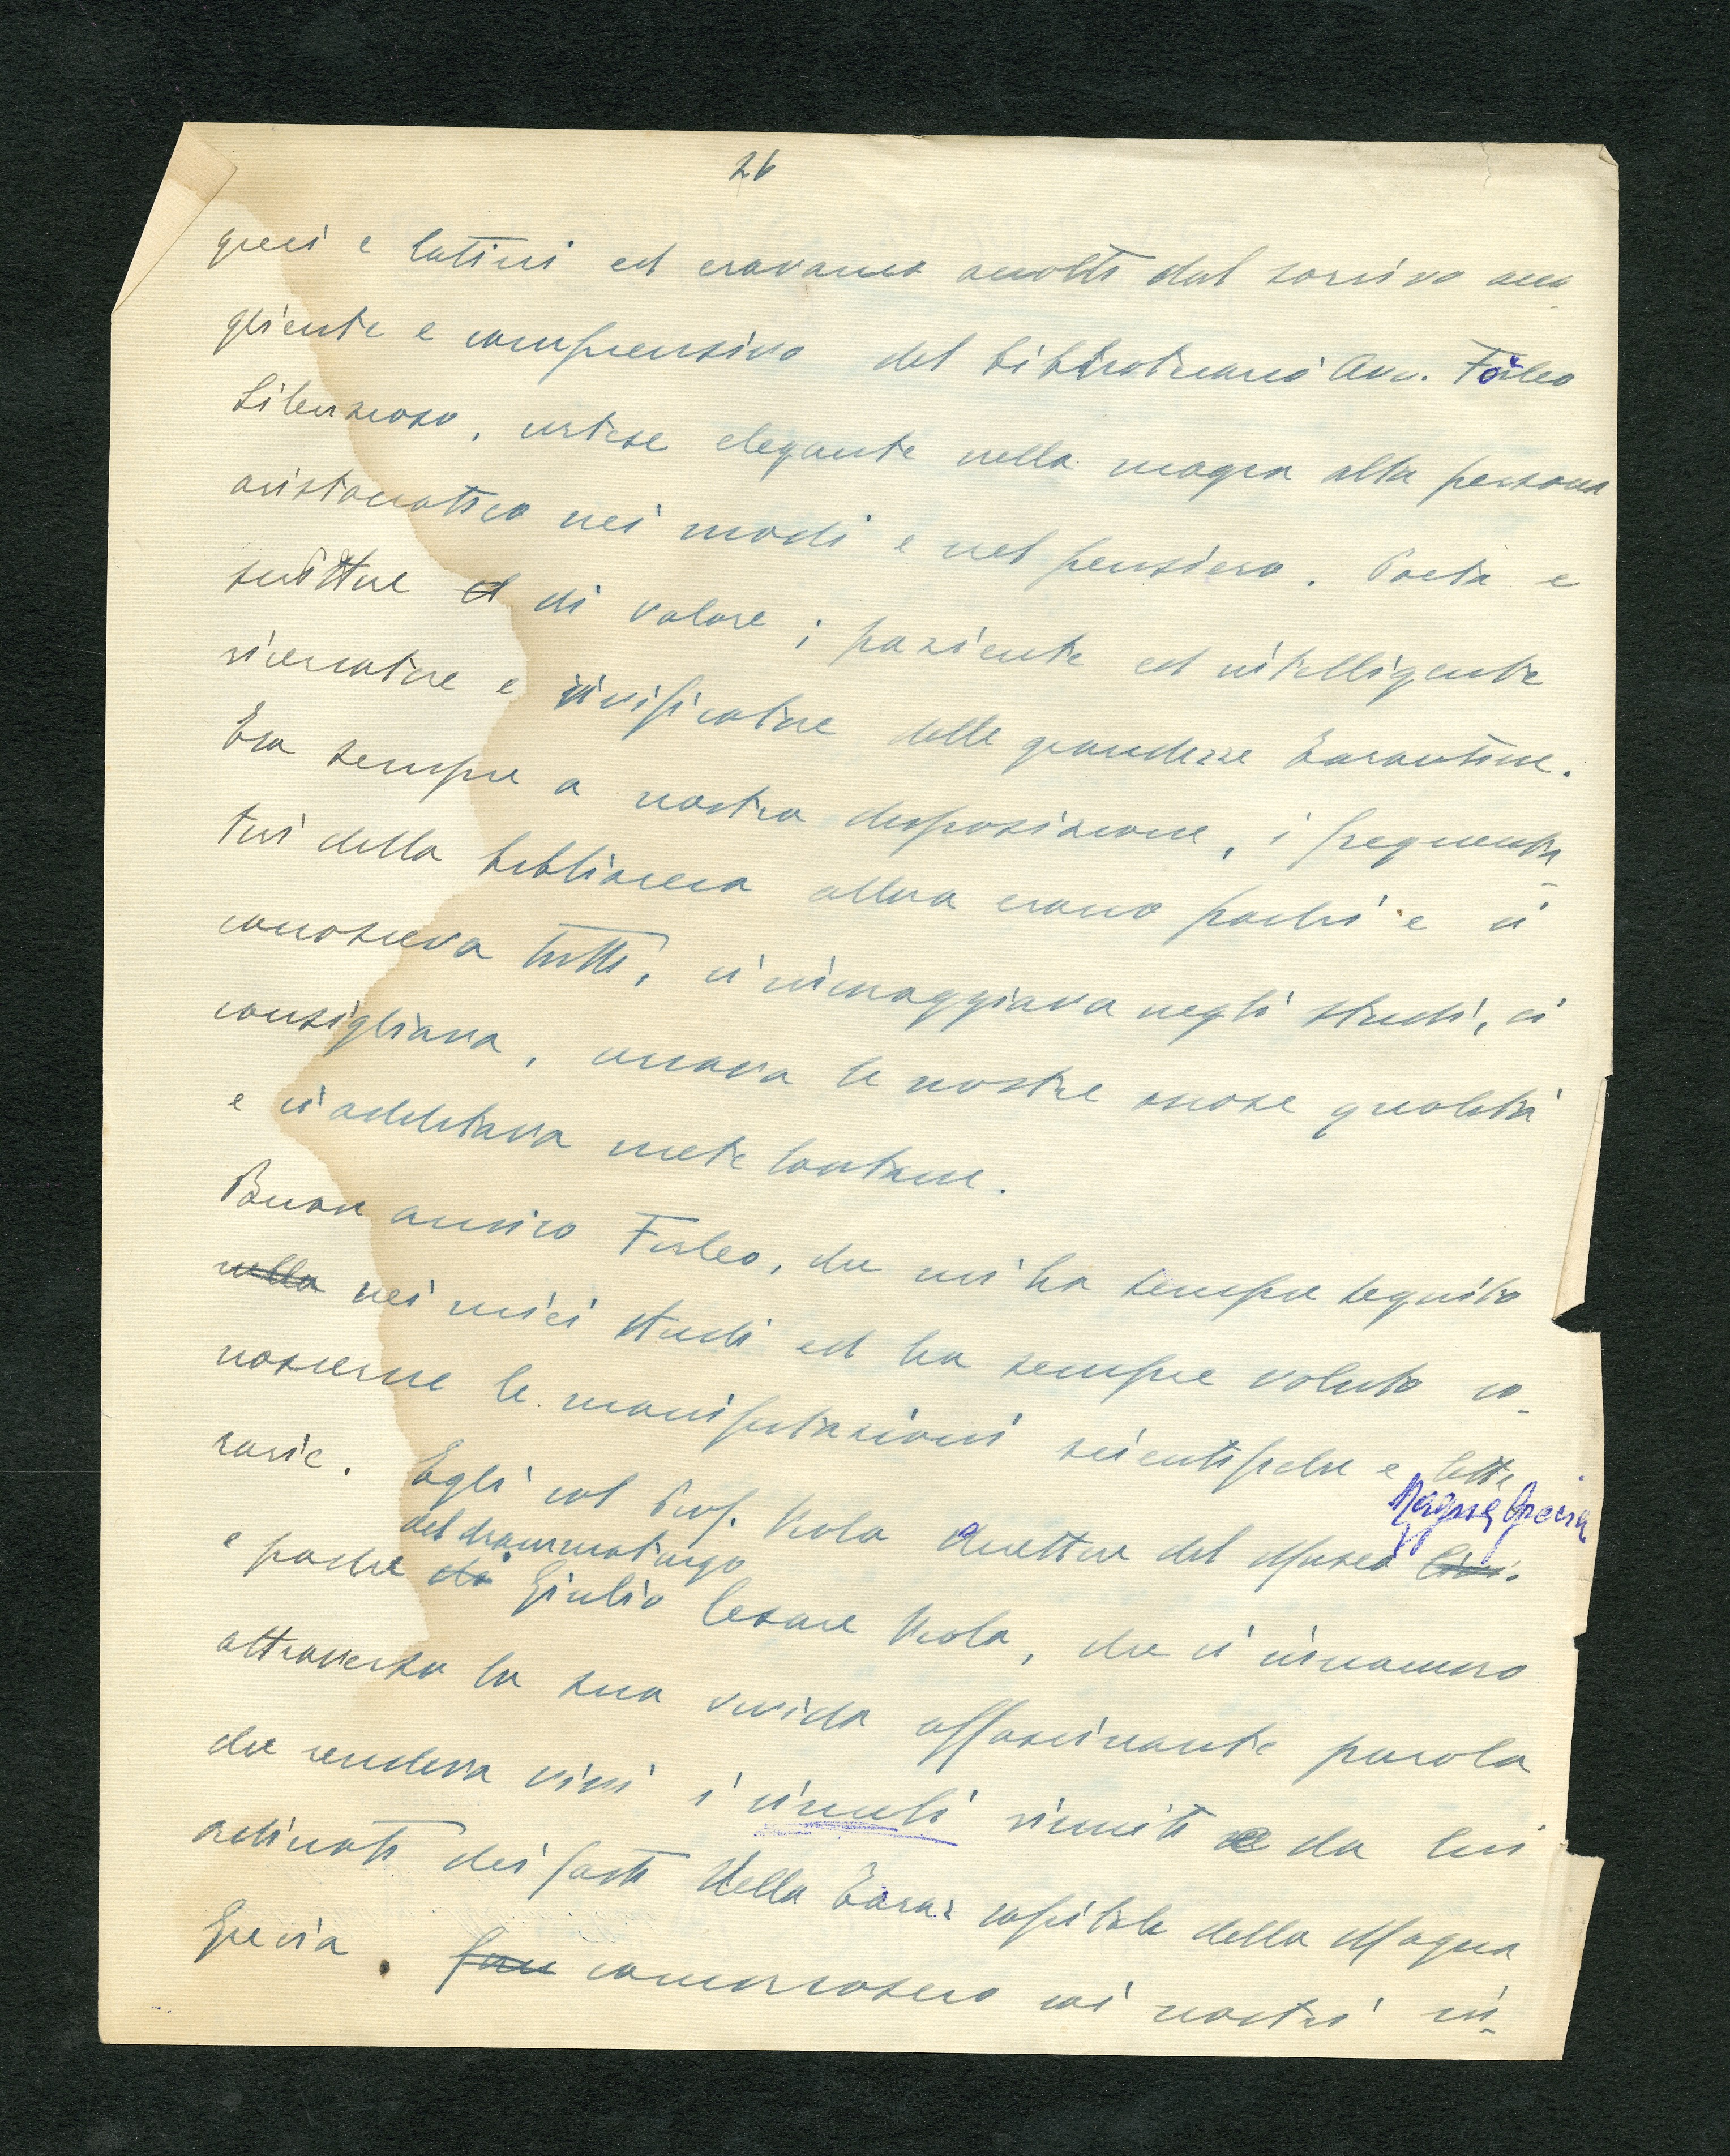 26
greci e latini ed eravamo accolti dal sorriso acco-
gliente e comprensivo del bibliotecario Avv. Forleo
Silenzioso, cortese elegante nella magra alta persona
aristocratico nei modi e nel pensiero. Poeta e
scrittore di valore; paziente ed intelligente
ricercatore e vivificatore delle grandezze tarantine.
Era sempre a nostra disposizione, i frequenta-
tori della biblioteca allora erano pochi e ci
conosceva tutti, ci incoraggiava negli studi, ci
consigliava, amava le nostre qualità
e ci additava mete lontane.
Buon amico Forleo, che mi ha sempre seguito
nella nei miei studi ed ha sempre voluto co-
noscerne le manifestazioni scientifiche e lette-
rarie. Egli col Prof. Viola direttore del Museo Magna Grecia
e padre di del drammaturgo Giulio Cesare Viola, che ci innamorò
attraverso la sua vivida affascinante parola
che rendeva vivi i cimeli riuniti e da lui
ordinati dei fasti della Taras capitale della Magna
Grecia. commossero coi nostri in-